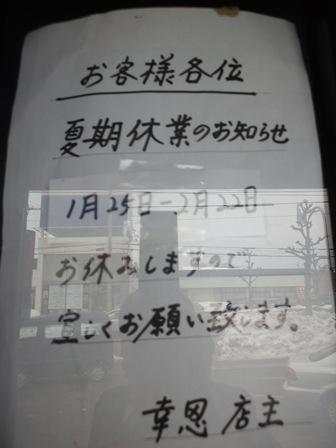 お客様各位
夏期休業のお知らせ
1月25日-2月22日
お休みしますので
宜しくお願い致します。
幸恩 店主